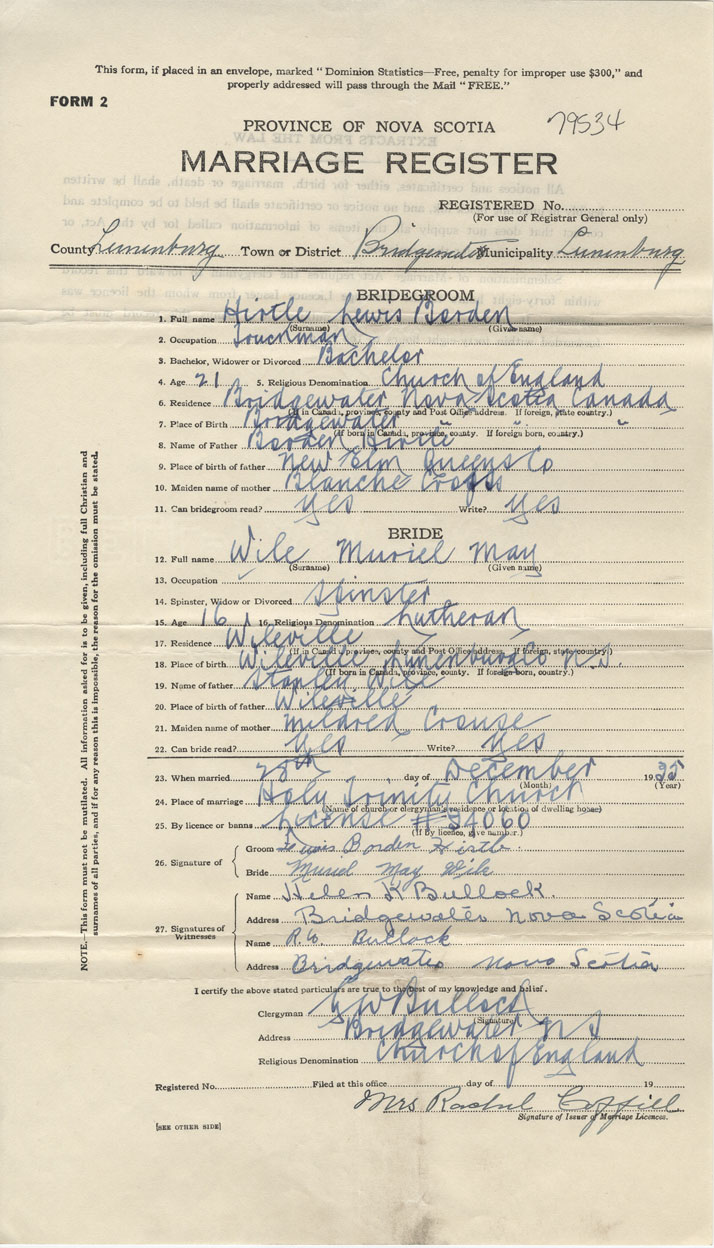 This form, if placed in an envelope, marked "Dominion Statistics—Free, penalty for improper use $300," and
properly addressed will pass through the Mail "FREE."
FORM 2
79534
PROVINCE OF NOVA SCOTIA
MARRIAGE REGISTER
REGISTERED No.
(For use of Registrar General only)
County Lunenburg Town or District Bridgewater Municipality Lunenburg
BRIDEGROOM
1. Full name Hirtle Lewis Borden
(Surname) (Given name)
2. Occupation Truckman
3. Bachelor, Widower or Divorced Bachelor
4. Age 21 5. Religious Denomination Church of England
6. Residence Bridgewater Nova Scotia Canada
(If in Canada, province, county and Post Office address. If foreign, state country.)
7. Place of Birth Bridgewater " " "
(If born in Canada, province, county. If foreign born, country.)
8. Name of Father Borden Hirtle
9. Place of birth of father New Elm Queens Co
10. Maiden name of mother Blanche
11. Can bridegroom read? Yes Write? Yes
BRIDE
12. Full name Wile Muriel May
(Surname) (Given name)
13. Occupation
14. Spinster, Widow or Divorced Spinster
15. Age 16 16. Religious Denomination Lutheran
17. Residence Wileville
(If in Canada, province, county and Post Office address. If foreign, state country.)
18. Place of birth Wileville Lunenburg Co N.S.
(If born in Canada, province, county. If foreign-born, country.)
19. Name of father Stanley Wile
20. Place of birth of father Wileville
21. Maiden name of mother Mildred Crouse
22. Can bride read? Yes Write? Yes
23. When married 28th day of December 1935
(Month) (Year)
24. Place of marriage Holy Trinity Church
(Name of church or clergyman's residence or location of dwelling house)
25. By licence or banns License #34060
(If by licence, give number.)
26. Signature of Groom Lewis Borden Hirtle
Bride Muriel May Wile
27. Signatures of Witnesses
Name Helen K Bullock.
Address Bridgewater Nova Scotia
Name R.W. Bullock
Address Bridgewater Nova Scotia
I certify the above stated particulars are true to the best of my knowledge and belief.
Clergyman Bullock
(Signature)
Address Bridgewater N S
Religious Denomination Church of England
Registered No. Filed at this office day of 19
Mrs Rachel Coffill
Signature of Issuer of Marriage Licences.
[SEE OTHER SIDE]
NOTE.—This form must not be mutilated. All information asked for is to be given, including full Christian and
surnames of all parties, and if for any reason this is impossible, the reason for the omission must be stated.